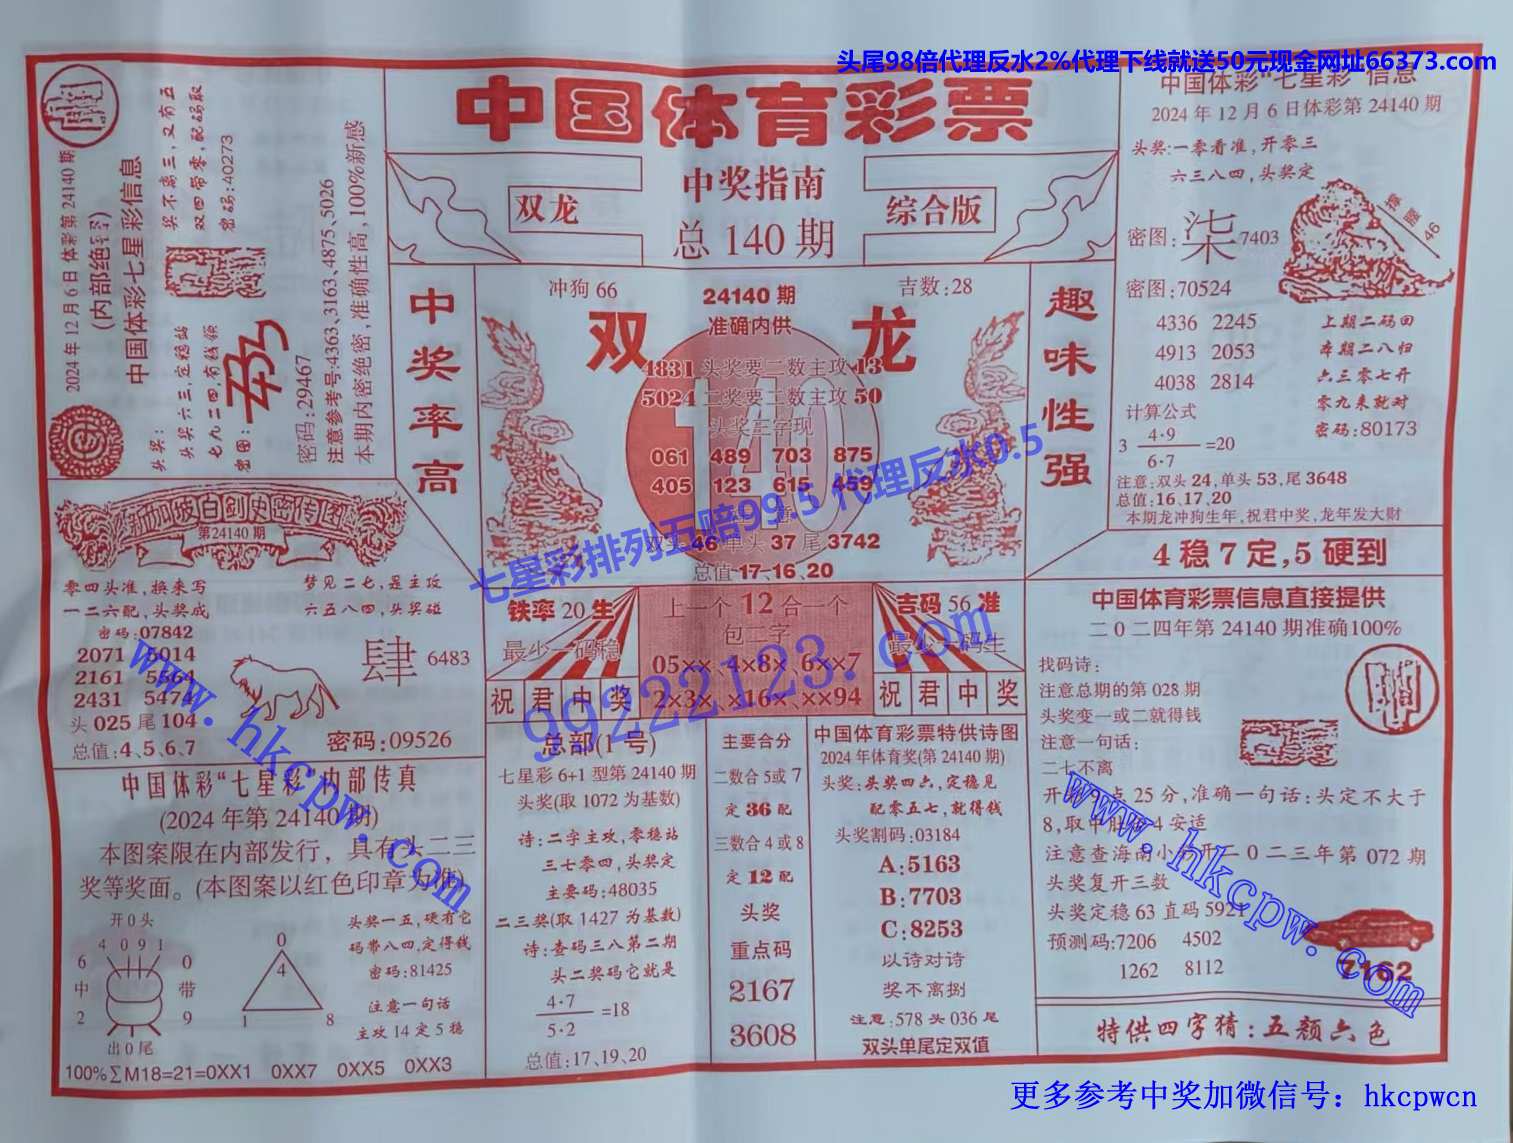 头尾98倍代理反水2%代理下线就送50元现金网址66373.com
中国体育彩票
双龙
中奖指南
综合版
总 140 期
2024年12月6日 体彩第24140期
(内部绝密)
中国体彩七星彩信息
奖不离三,又有五
双四带零,配码取
密码:40273
头奖:
头奖六三,定稳站
七九二四,有钱领
密图:
密码:29467
注意参考号:4363、3163、4875、5026
本期内密绝密,准确性高,100%新感
中奖率高
冲狗 66
24140 期
吉数:28
双
准确内供
龙
4831 头奖要二数主攻 13
5024 二奖要二数主攻 50
头奖三字现
061 489 703 875
405 123 615 459
注意
双头 46 单头 37 尾 3742
总值 17、16、20
趣味性强
中国体彩"七星彩"信息
2024年12月6日体彩第24140期
头奖:一零看准,开零三
六三八四,头奖定
密图:柒 7403
46
密图:70524
4336 2245
4913 2053
4038 2814
上期二码回
本期二八归
六三零七开
零九来就对
密码:80173
计算公式
3 4·9
6·7 =20
注意:双头 24,单头 53,尾 3648
总值:16、17、20
本期龙冲狗生年,祝君中奖,龙年发大财
4 稳 7 定,5 硬到
新加坡白剑史密传图
第24140期
零四头准,换来写
一二六配,头奖成
密码:07842
2071 5014
2161 5564
2431 5474
头 025 尾 104
总值:4、5、6、7
梦见二七,是主攻
六五八四,头奖碰
肆 6483
密码:09526
铁率 20 生
最少一码稳
上一个 12 合一个
包二字
05×× 4×8× 6××7
2×3× ×16× ××94
吉码 56 准
最少一码生
祝君中奖
祝君中奖
中国体育彩票信息直接提供
二〇二四年第 24140 期准确100%
找码诗:
注意总期的第 028 期
头奖变一或二就得钱
注意一句话:
二七不离
开奖9点25分,准确一句话:头定不大于
8,取中肚有4安适
注意查海南小奖开二〇二三年第 072 期
头奖复开三数
头奖定稳 63 直码 5921
预测码:7206 4502
1262 8112
7162
特供四字猜:五颜六色
中国体彩"七星彩"内部传真
(2024年第24140期)
本图案限在内部发行，具有头二三
奖等奖面。(本图案以红色印章为准)
开 0 头
4 0 9 1
6 0
中 带
2 9
出 0 尾
0
4
1 8
头奖一五,硬有它
码带八四,定得钱
密码:81425
注意一句话
主攻 14 定 5 稳
100%∑M18=21=0XX1 0XX7 0XX5 0XX3
总部(1号)
七星彩 6+1 型第 24140 期
头奖(取 1072 为基数)
诗:二字主攻,零稳站
三七零四,头奖定
主要码:48035
二三奖(取 1427 为基数)
诗:查码三八第二期
头二奖码它就是
4·7
5·2 =18
总值:17、19、20
主要合分
二数合 5 或 7
定 36 配
三数合 4 或 8
定 12 配
头奖
重点码
2167
3608
中国体育彩票特供诗图
2024年体育奖(第 24140 期)
头奖:头奖四六,定稳见
配零五七,就得钱
头奖割码:03184
A:5163
B:7703
C:8253
以诗对诗
奖不离捌
注意:578 头 036 尾
双头单尾定双值
七星彩排列五赔99.5 代理反水0.5
99222123.com
www.hkcpw.com
www.hkcpw.com
更多参考中奖加微信号：hkcpwcn